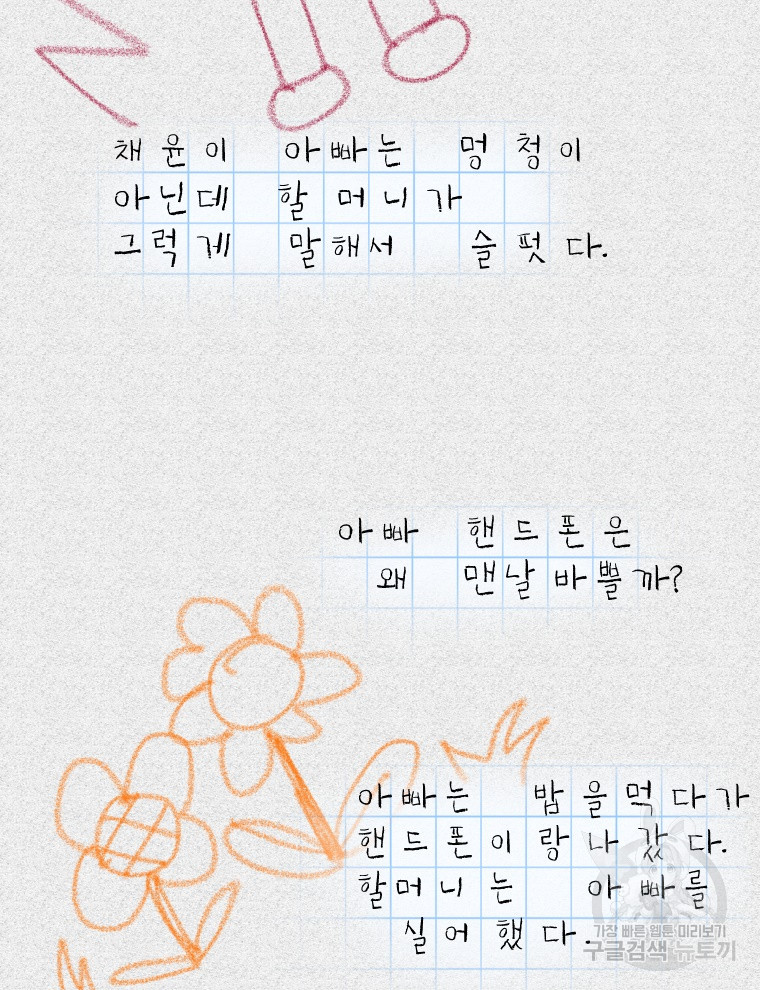 채윤이 아빠는 멍청이
아닌데 할머니가
그럭게 말해서 슬펏다.
아빠 핸드폰은
왜 맨날 바쁠까?
아빠는 밥을먹다가
핸드폰이랑나갔다.
할머니는 아빠를
실어했다.
가장 빠른 웹툰 미리보기
구글검색 뉴토끼